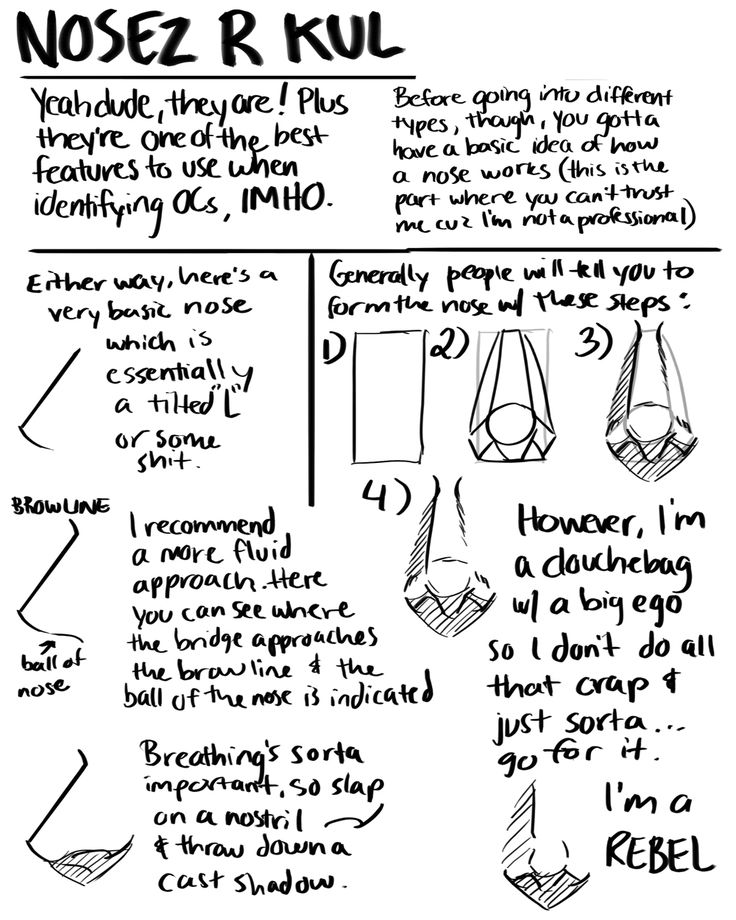 NOSEZ R KUL
Yeah dude, they are! Plus
they're one of the best
features to use when
identifying OCs, IMHO.
Before going into different
types, though, you gotta
have a basic idea of how
a nose works (this is the
part where you can't trust
me cuz I'm not a professional)
Either way, here's a
very basic nose
which is
essentially
a tilted "L"
or some
shit.
Generally people will tell you to
form the nose w/ these steps:
1)
2)
3)
4)
BROWLINE
ball of
nose
I recommend
a more fluid
approach. Here
you can see where
the bridge approaches
the browline & the
ball of the nose is indicated
However, I'm
a douchebag
w/ a big ego
so I don't do all
that crap &
just sorta...
go for it.
I'm a
REBEL
Breathing's sorta
important, so slap
on a nostril
& throw down a
cast shadow.